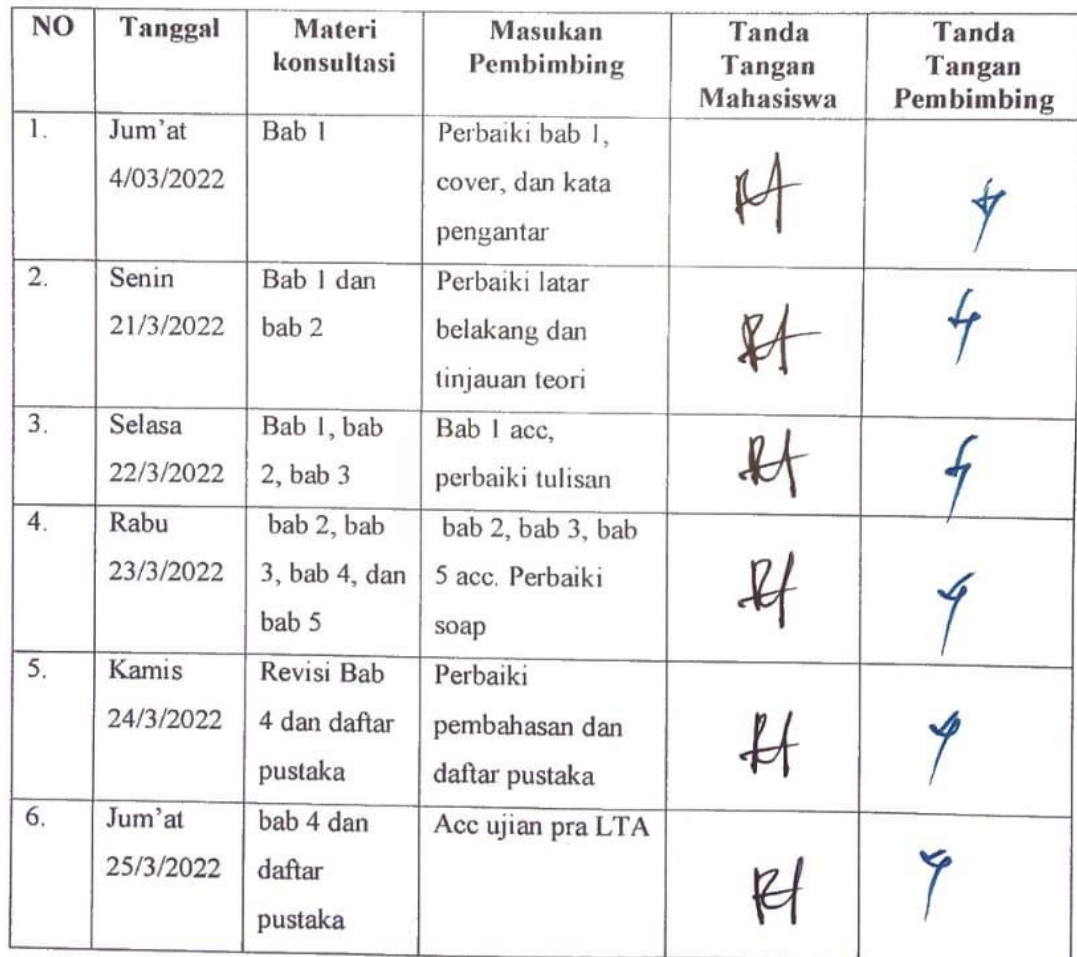 NO
Tanggal
Materi
konsultasi
Masukan
Pembimbing
Tanda
Tangan
Mahasiswa
Tanda
Tangan
Pembimbing
1.
Jum'at
4/03/2022
Bab 1
Perbaiki bab 1,
cover, dan kata
pengantar
2.
Senin
21/3/2022
Bab 1 dan
bab 2
Perbaiki latar
belakang dan
tinjauan teori
3.
Selasa
22/3/2022
Bab 1, bab
2, bab 3
Bab 1 acc,
perbaiki tulisan
4.
Rabu
23/3/2022
bab 2, bab
3, bab 4, dan
bab 5
bab 2, bab 3, bab
5 acc. Perbaiki
soap
5.
Kamis
24/3/2022
Revisi Bab
4 dan daftar
pustaka
Perbaiki
pembahasan dan
daftar pustaka
6.
Jum'at
25/3/2022
bab 4 dan
daftar
pustaka
Acc ujian pra LTA